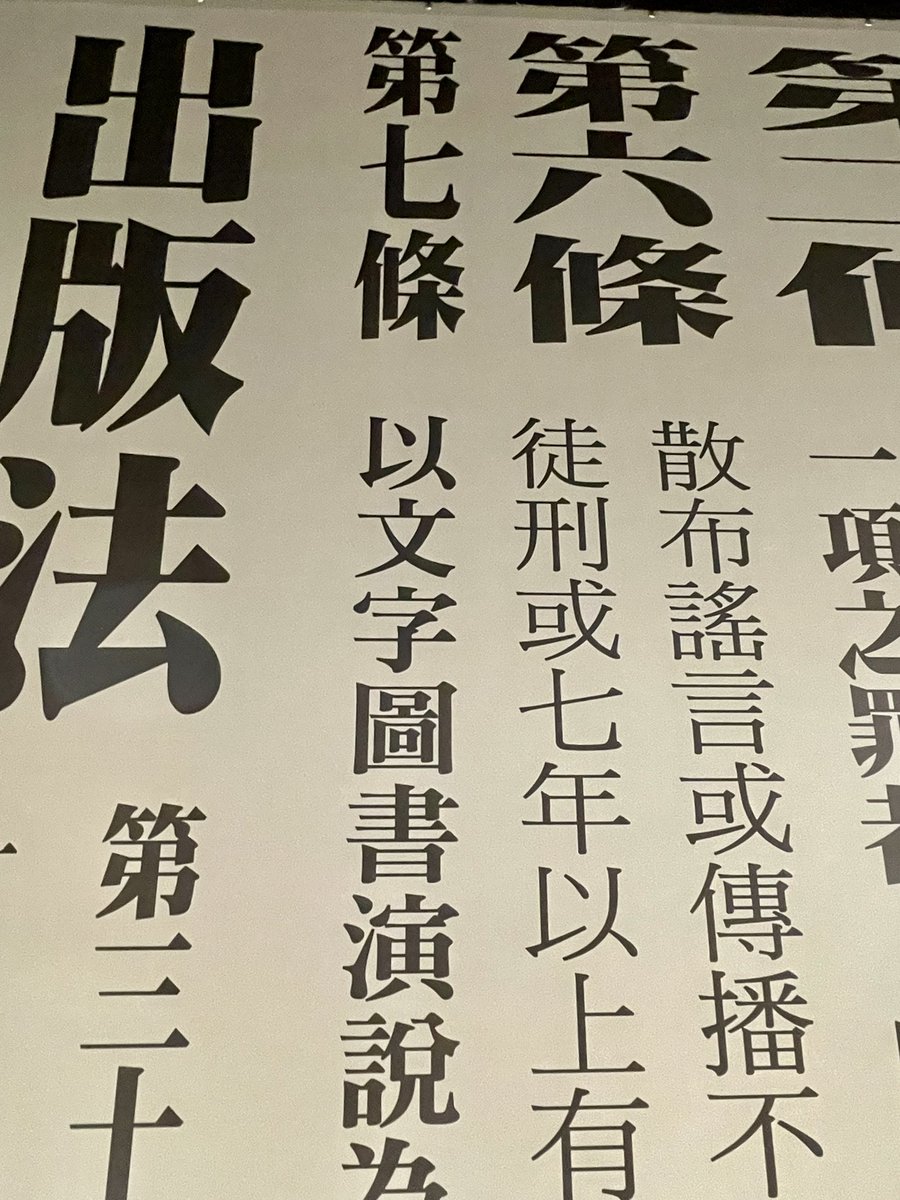 一項之罪者
第六條
散布謠言或傳播不
徒刑或七年以上有
第七條
以文字圖書演說為
出版法
第三十